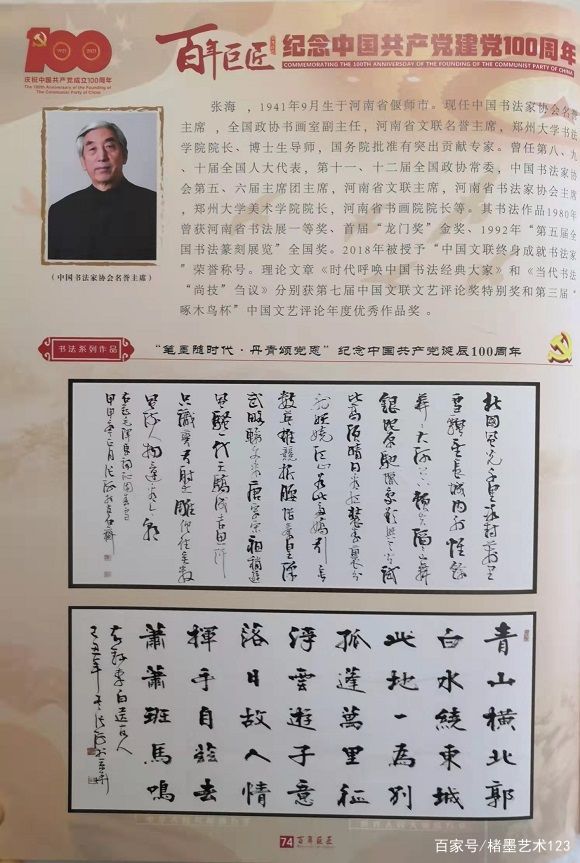 100
1921
2021
庆祝中国共产党成立100周年
The 100th Anniversary of the Founding of
The Communist Party of China
百年巨匠
纪念中国共产党建党100周年
COMMEMORATING THE 100TH ANNIVERSARY OF THE FOUNDING OF THE COMMUNIST PARTY OF CHINA
张海 ，1941年9月生于河南省偃师市。现任中国书法家协会名誉
主席 ，全国政协书画室副主任，河南省文联名誉主席，郑州大学书法
学院院长、博士生导师，国务院批准有突出贡献专家。曾任第八、九
、十届全国人大代表，第十一、十二届全国政协常委，中国书法家协
会第五、六届主席团主席，河南省文联主席，河南省书法家协会主席
，郑州大学美术学院院长，河南省书画院院长等。其书法作品1980年
曾获河南省书法展一等奖、首届“龙门奖”金奖、1992年“第五届全
国书法篆刻展览”全国奖。2018年被授予“中国文联终身成就书法家
”荣誉称号。理论文章《时代呼唤中国书法经典大家》和《当代书法
“尚技”刍议》分别获第七届中国文联文艺评论奖特别奖和第三届“
啄木鸟杯”中国文艺评论年度优秀作品奖 。
（中国书法家协会名誉主席）
书法系列作品
“笔墨随时代·丹青颂党恩”纪念中国共产党诞辰100周年
北国風光千里冰封萬里
雪飄望長城内外惟餘
莽莽大河上下頓失滔滔山舞
銀蛇原馳蠟象欲與天公試
比高須晴日看紅裝素裹分
外妖嬈江山如此多嬌引無
數英雄競折腰惜秦皇漢
武略輸文采唐宗宋祖稍遜
風騷一代天驕成吉思汗
只識彎弓射大雕俱往矣數
風流人物還看今朝
青山橫北郭
白水繞東城
此地一為別
孤蓬萬里征
浮雲遊子意
落日故人情
揮手自茲去
蕭蕭班馬鳴
右録李白送友人
74 百年巨匠
百家号/楮墨艺术123